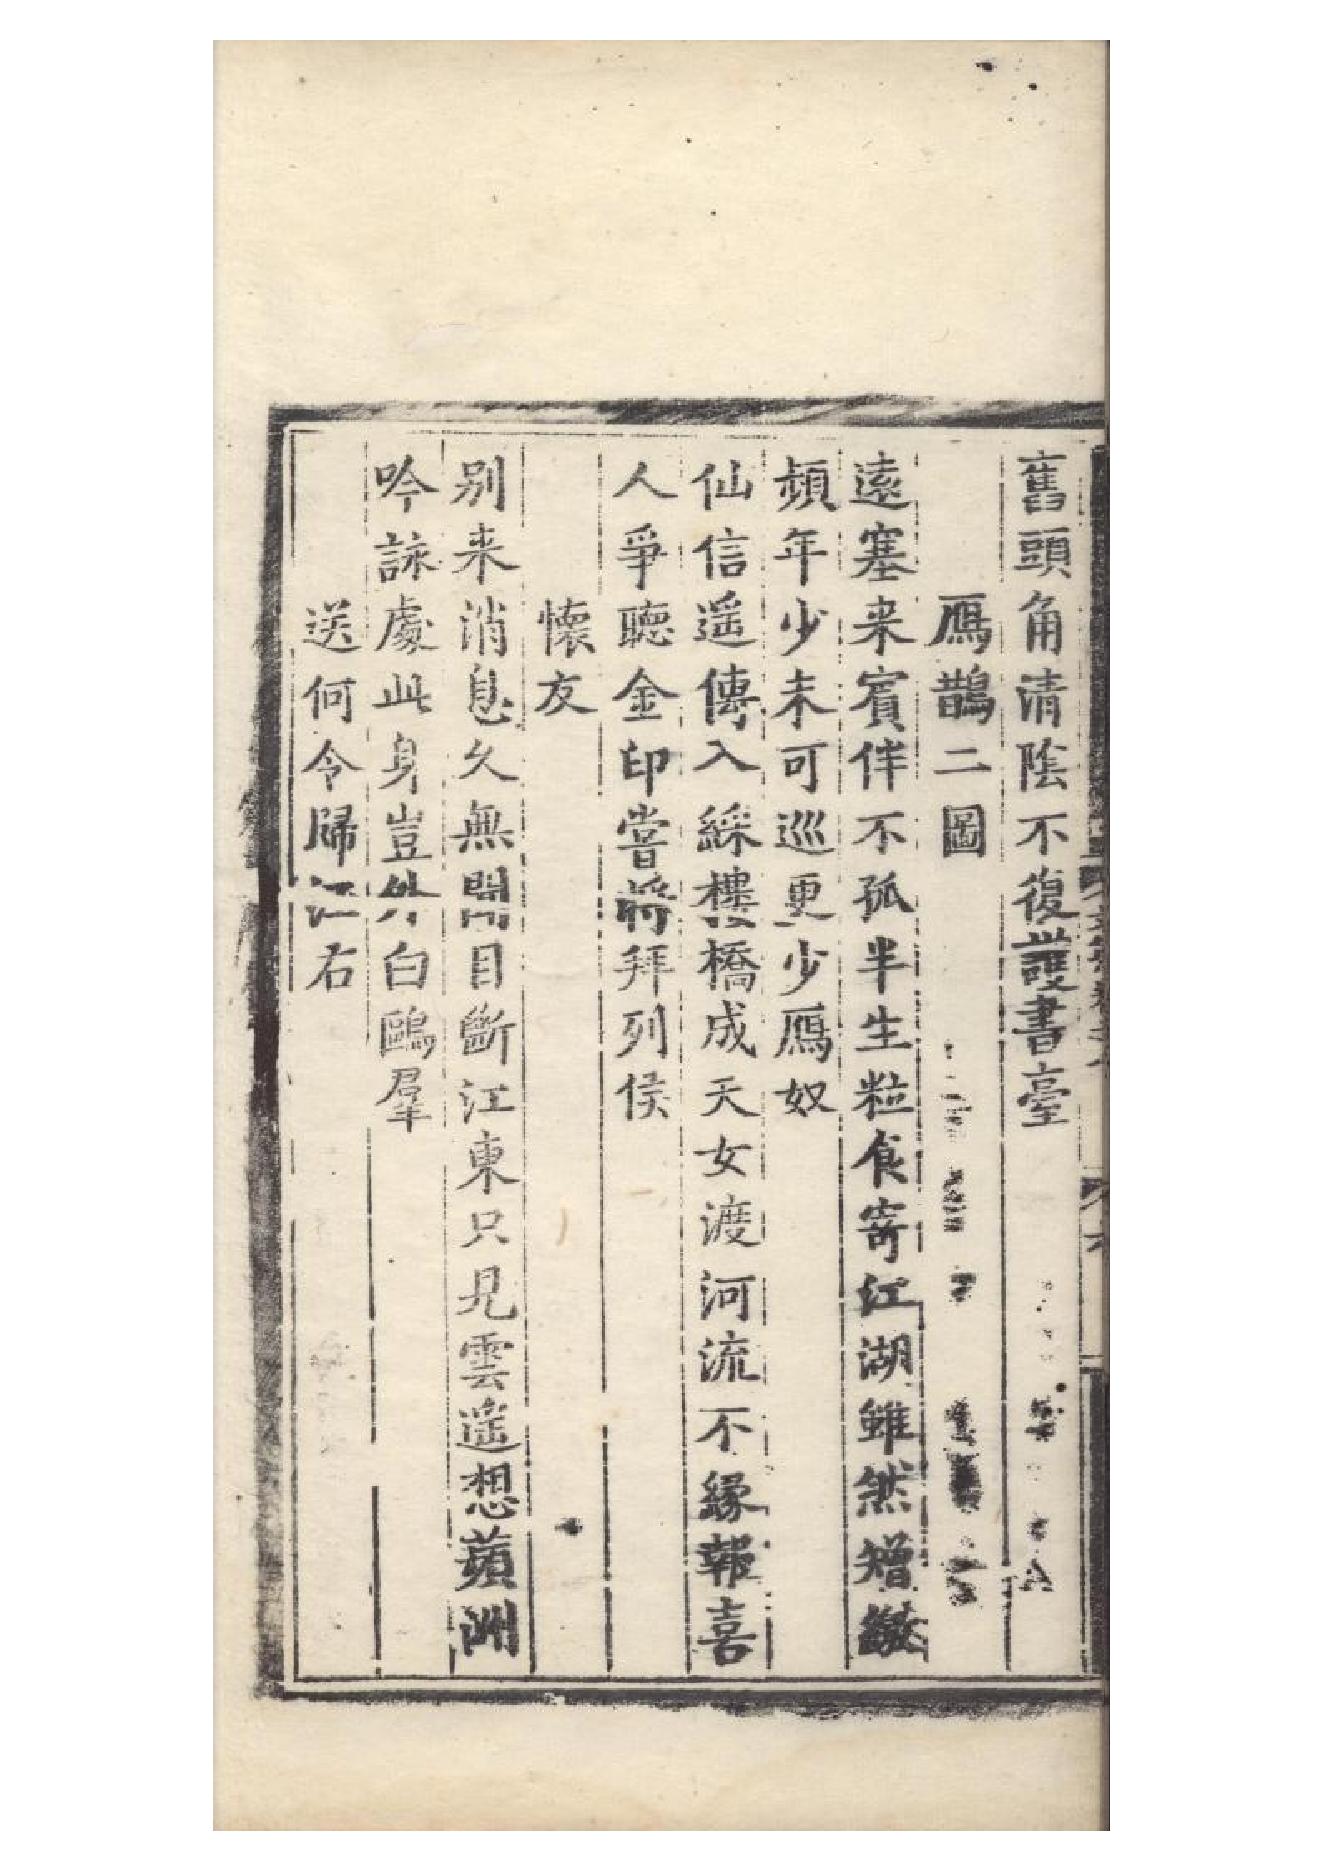 舊頭角清陰不復護書臺
鴈鵲二圖
遠塞来賓伴不孤半生粒食寄江湖雖然矰繳
頻年少未可巡更少鴈奴
仙信遥傳入綵樓橋成天女渡河流不緣報喜
人爭聽金印嘗將拜列侯
懷友
別来消息久無聞目斷江東只見雲遥想蘋洲
吟詠處此身豈外白鷗羣
送何令歸江右